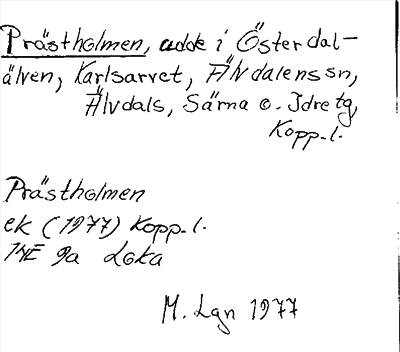 Prästholmen, udde i Österdal-
älven, Karlsarvet, Älvdalens sn,
Älvdals, Särna o. Idre tg,
Kopp-l.
Prästholmen
ek (1977) Kopp-l.
14E 9a Loka
M. Lgn 1977